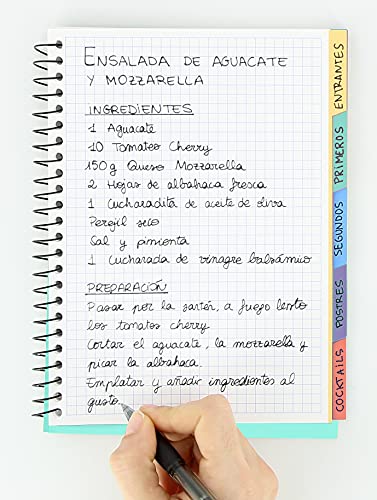 ENSALADA DE AGUACATE
Y MOZZARELLA
INGREDIENTES
1 Aguacate
10 Tomates Cherry
150g Queso Mozzarella
2 Hojas de albahaca fresca
1 Cucharadita de aceite de oliva
Perejil seco
Sal y pimienta
1 Cucharada de vinagre balsámico
PREPARACIÓN
Pasar por la sartén, a fuego lento
los tomates cherry
Cortar el aguacate, la mozzarella y
picar la albahaca.
Emplatar y añadir ingredientes al
gusto.
ENTRANTES
PRIMEROS
SEGUNDOS
POSTRES
COCKTAILS